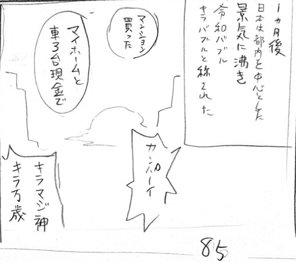 1ヵ月後
日本は都内を中心とした
景気に沸き
令和バブル
キラバブルと称された
マンション
買った
マイホームと
車3台現金で
カンパーイ
キラマジ神
キラ万歳
85